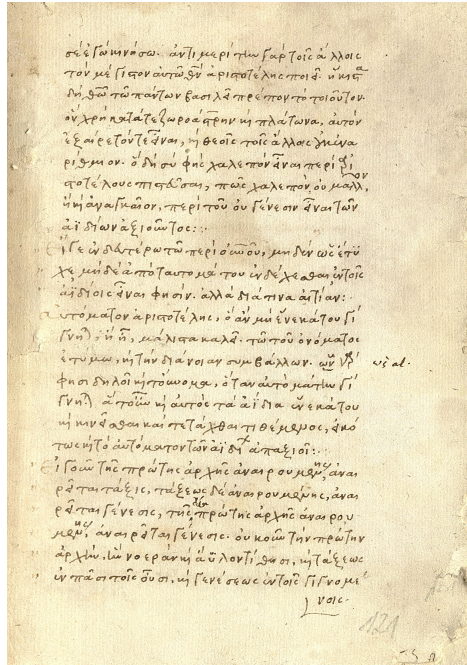 σέ ἐγὼ κινήσω. ἀντιμερίτην γὰρ τοῖς ἄλλοις
τὸν μέγιστον αὐτῶ θῦ ἀριστοτέλης ποιεῖ. ἥκιστα
δὴ θεῶ τῶ πάντων βασιλεῖ πρέπον τὸ τοιοῦτον.
ὃν χρὴ κατά τε ζωροάστρην καὶ πλάτωνα, αὐτὸν
ἐξαίρετόν τε εἶναι, καὶ θεοῖς τοῖς ἄλλοις
ρίθμιον. ὃ δὴ σὺ φὴς χαλεπὸν εἶναι περὶ ἀρι
στοτέλους πιστεῦσαι, πῶς χαλεπὸν, οὐ μᾶλλον
ἢ καὶ ἀναγκαῖον, περὶ τοῦ οὐ γένεσιν εἶναι τῶν
ἀϊδίων ἀξιοῦντος:
Εἴ γε ἐν δευτέρω τῶ περὶ οὐνοῦ, μηδὲν ὡς ἔτυ
χε μηδὲ ἀπὸ ταυτομάτου ἐνδέχεσθαι ἐν τοῖς
ἀϊδίοις εἶναι φησίν. ἀλλὰ διά τινα αἰτίαν:
αυτόματον ἀριστοτέλης, ὃ ἂν μὴ ἕνεκά του γί
γνηται, μάλιστα καλεῖ. τῶ τοῦ ὀνόματος
ἐτύμω, καὶ τὴν διάνοιαν συμβάλλων. γάρ
φησι δηλοῖ καὶ τοὔνομα, ὅταν αὐτὸ μάτην γί
γνηται. ἅτ' οὖν καὶ αὐτὸς τὰ ἀΐδια ἕνεκά του
καὶ κινεῖσθαι καὶ τετάχθαι τιθέμενος, εἰκό
τως καὶ τὸ αὐτόματον τῶν ἀϊδίων ἀπαξιοῖ:
Εἰ γοῦν τῆς πρώτης ἀρχῆς ἀναιρουμένης, ἀναι
ρεῖται τάξις, τάξεως δὲ ἀναιρουμένης, ἀναι
ρεῖται γένεσις, τῆς ἄρα πρώτης ἀρχῆς ἀναιρου
μένης, ἀναιρεῖται γένεσις. οὐκοῦν τὴν πρώτην
ἀρχὴν, ἣν νοερὰν καὶ ἄϋλον τίθησι, καὶ τάξεως
ἐν πᾶσι τοῖς οὖσι, καὶ γενέσεως ἐν τοῖς γιγνομέ
νοις.
121